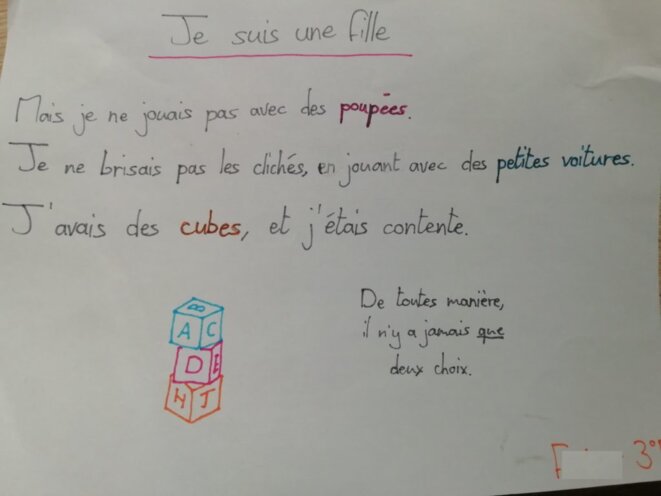 Je suis une fille
Mais je ne jouais pas avec des poupées.
Je ne brisais pas les clichés, en jouant avec des petites voitures.
J'avais des cubes, et j'étais contente.
De toutes manière,
il n'y a jamais que
deux choix.
B
A C
D E
H J